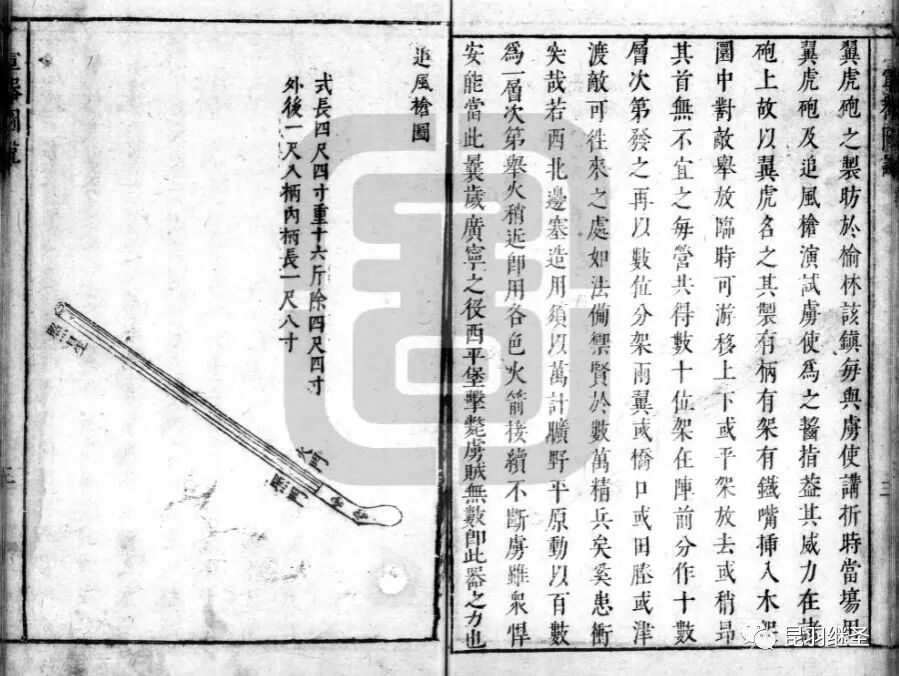 翼虎砲之製昉於榆林該鎮每與虜使講折時當場用
翼虎砲及追風槍演試虜使為之齰指葢其威力在
砲上故以翼虎名之其製有柄有架有鐵嘴挿入木架
圜中對敵舉放臨時可游移上下或平架放去或稍昻
其首無不宜之每營共得數十位架在陣前分作十數
層次第發之再以數位分架兩翼或橋口或田塍或津
渡敵可徃來之處如法備禦賢於數萬精兵矣奚患衝
突哉若西北邊塞造用須以萬計曠野平原動以百數
為一層次第舉火稍近卽用各色火箭接續不斷虜雖衆悍
安能當此曩歲廣寧之役西平堡擊斃虜賊無數卽此器之力也
追風槍圖
式長四尺四寸重十六斤除四尺四寸
外後一尺入柄內柄長一尺八寸
照星
火門
照門
昆羽继圣